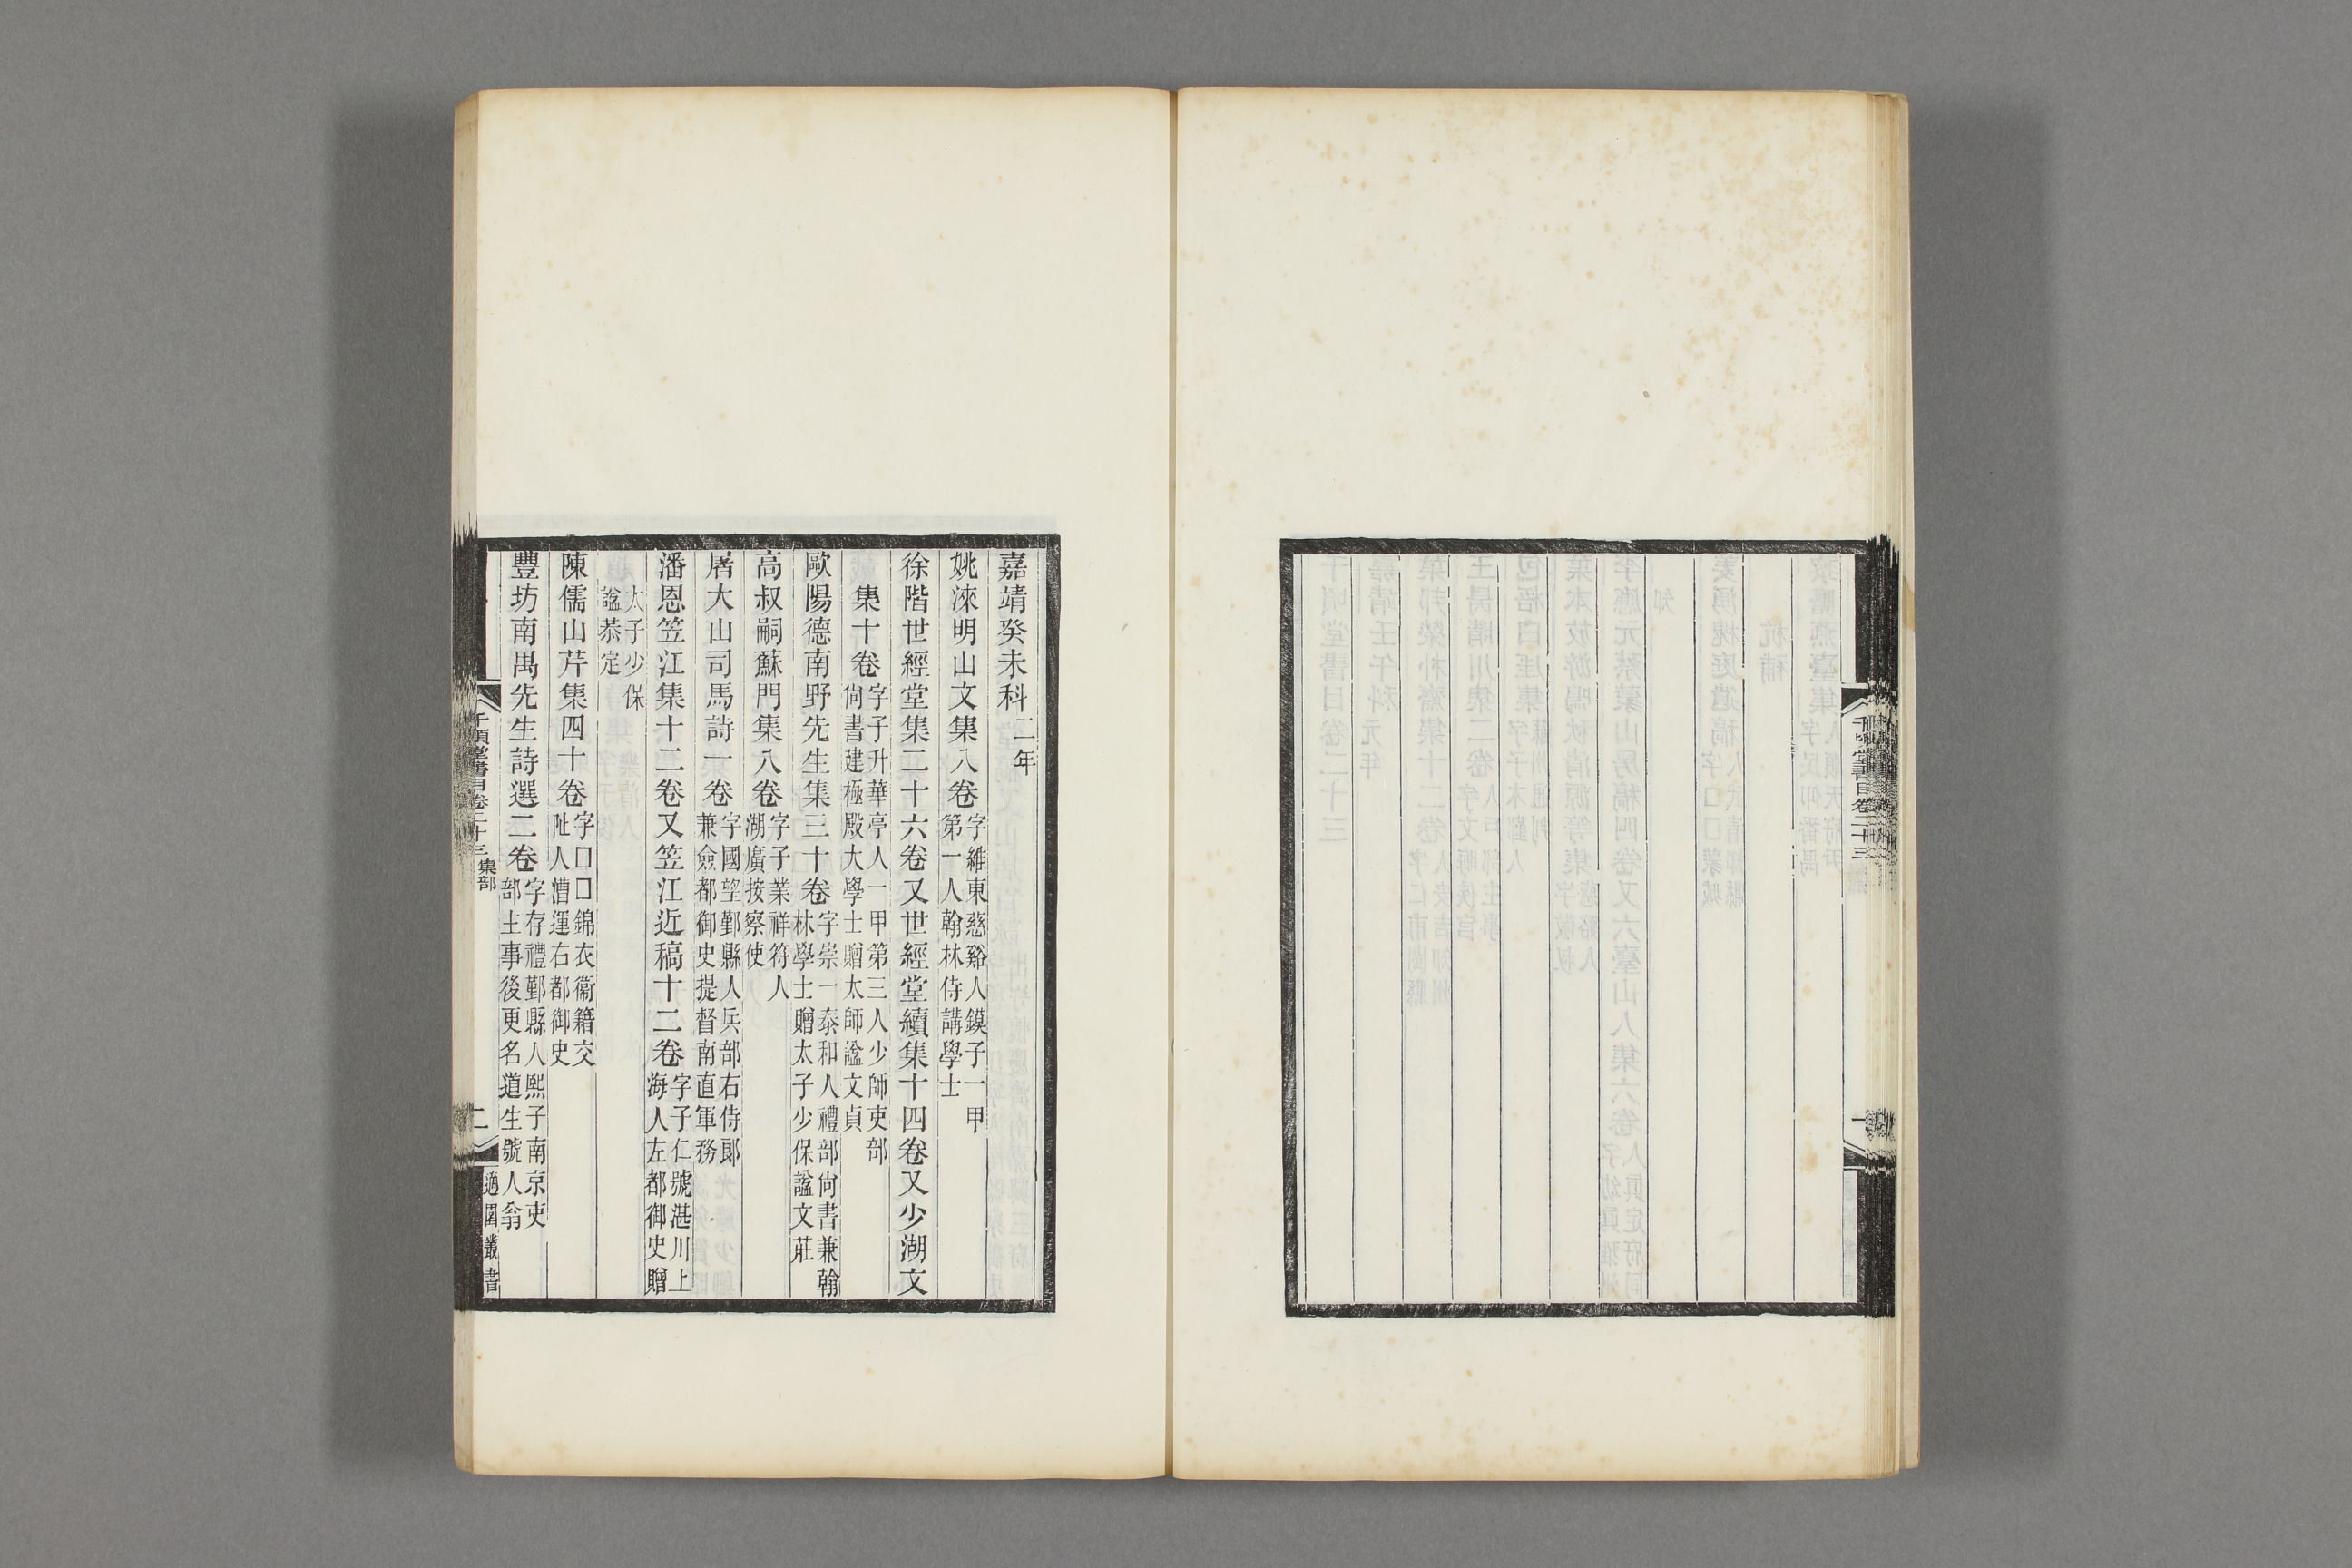 千頃堂書目卷二十三
一
嘉靖癸未科二年
姚淶明山文集八卷字維東慈谿人鏌子一甲第一人翰林侍講學士
徐階世經堂集二十六卷又世經堂續集十四卷又少湖文
集十卷字子升華亭人一甲第三人少師吏部尙書建極殿大學士贈太師諡文貞
歐陽德南野先生集三十卷字崇一泰和人禮部尙書兼翰林學士贈太子少保諡文莊
高叔嗣蘇門集八卷字子業祥符人湖廣按察使
屠大山司馬詩一卷字國望鄞縣人兵部右侍郞兼僉都御史提督南直軍務
潘恩笠江集十二卷又笠江近稿十二卷字子仁號湛川上海人左都御史贈
太子少保諡恭定
陳儒山芹集四十卷字囗囗錦衣衞籍交阯人漕運右都御史
豐坊南禺先生詩選二卷字存禮鄞縣人熙子南京吏部主事後更名道生號人翁
千頃堂書目卷二十三 集部
二
適園叢書